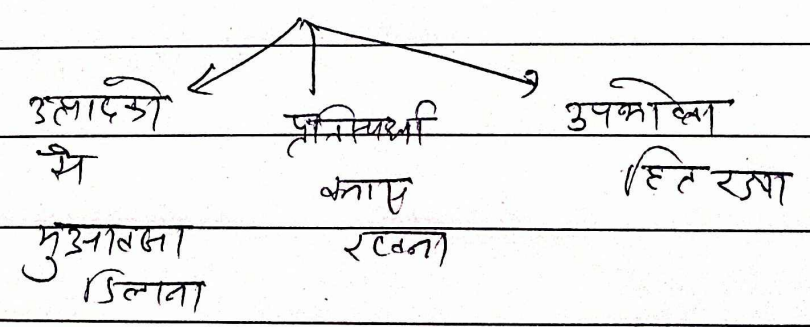 उत्पादको
मे
मुआवजा
दिलाना
प्रतिस्पर्धा
बनाए
रखना
उपभोक्ता
हित रक्षा